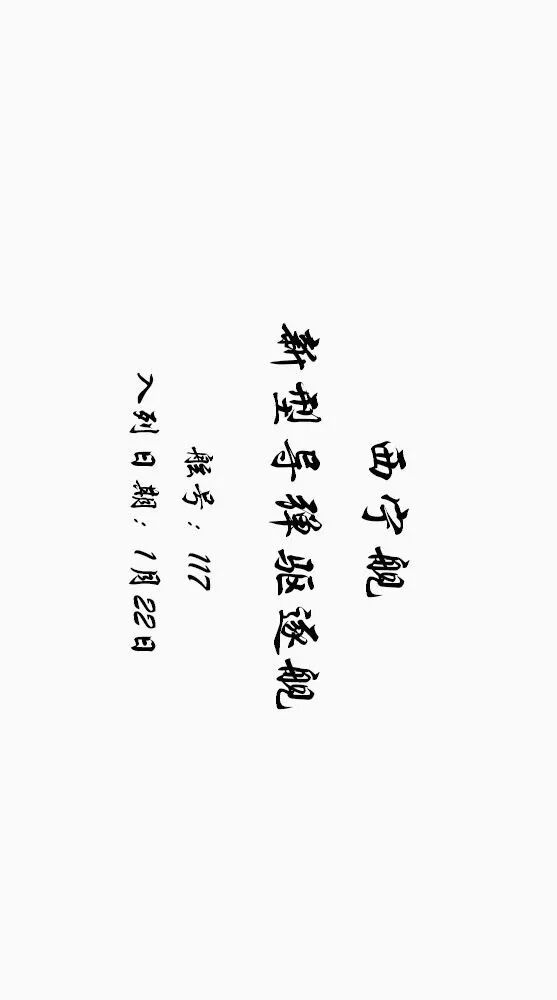 西宁舰
新型导弹驱逐舰
舷号：117
入列日期：1月22日